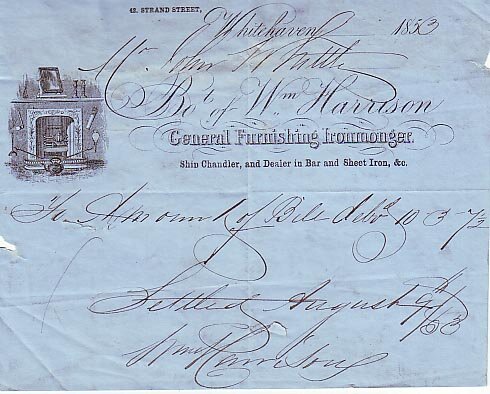 42, STRAND STREET,
Whitehaven 1853
Mr John
Bot. of Wm. Harrison
General Furnishing Ironmonger.
Ship Chandler, and Dealer in Bar and Sheet Iron, &c.
To Amount of Bill deld 10-3-7½
Settled August 9th/53
Wm Harrison